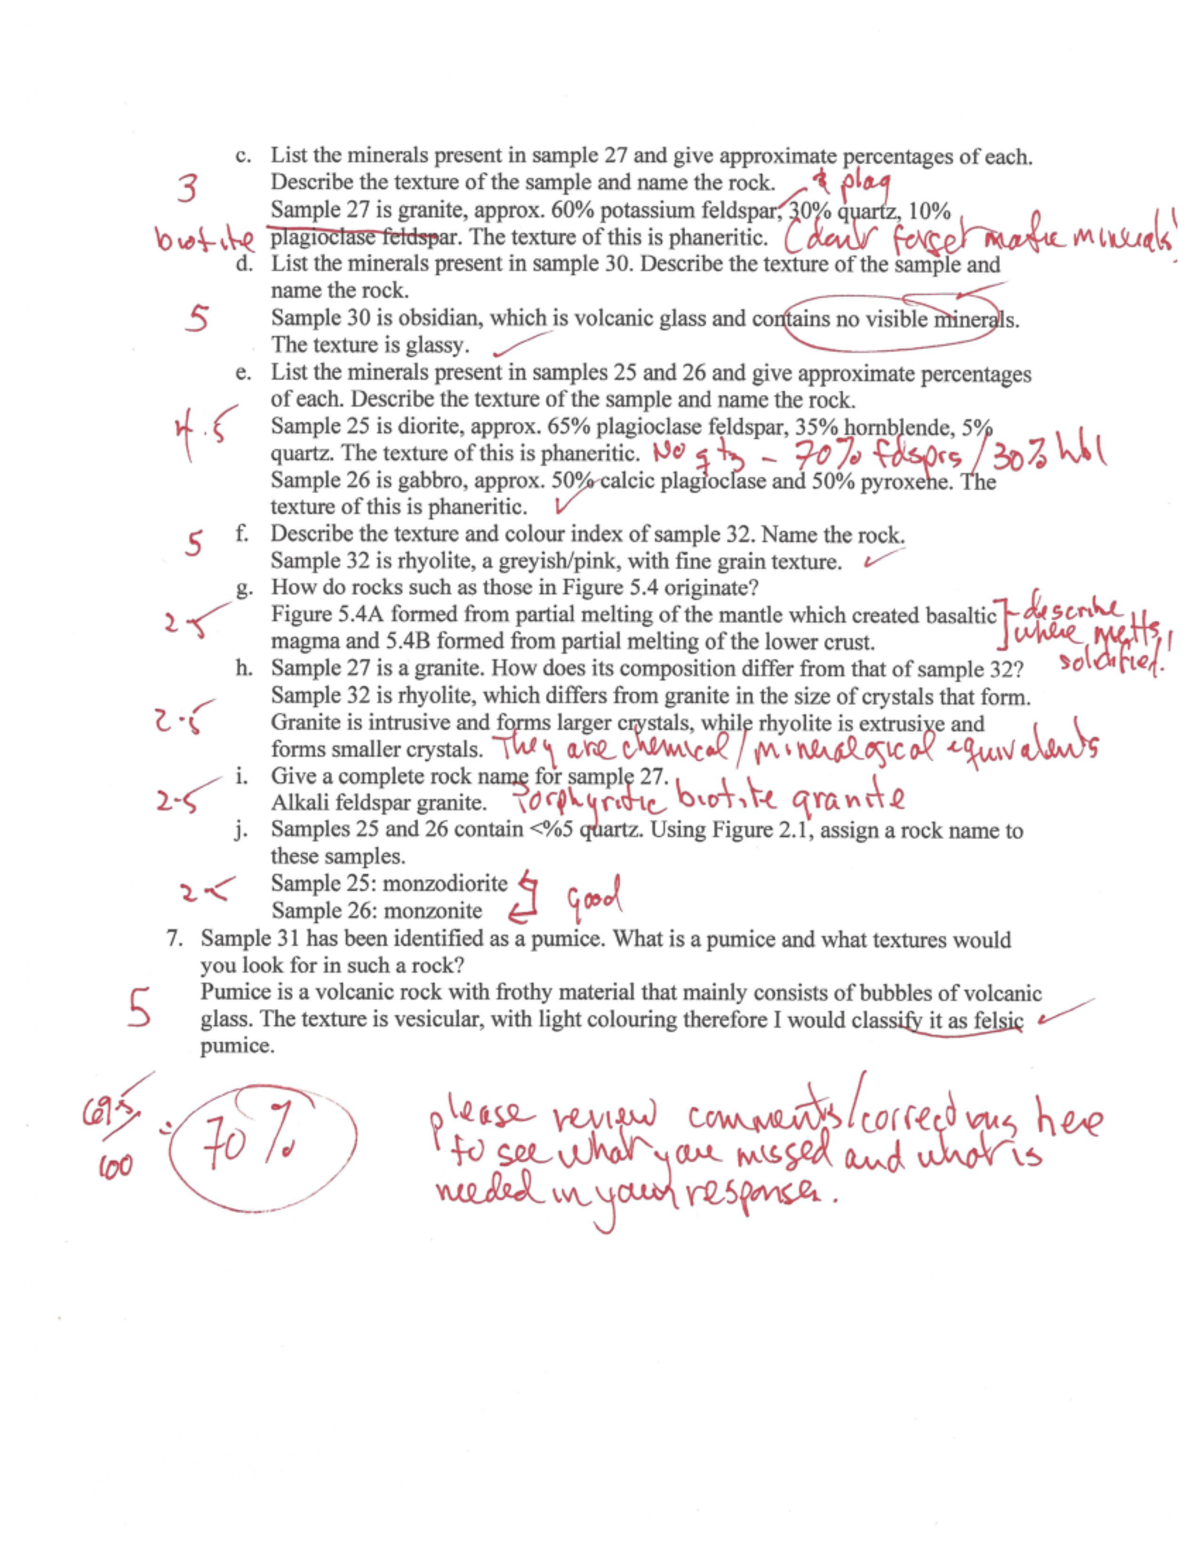 c. List the minerals present in sample 27 and give approximate percentages of each.
3 Describe the texture of the sample and name the rock. & plag
Sample 27 is granite, approx. 60% potassium feldspar, 30% quartz, 10%
biotite plagioclase feldspar. The texture of this is phaneritic. (don't forget mafic minerals!
d. List the minerals present in sample 30. Describe the texture of the sample and
name the rock.
5 Sample 30 is obsidian, which is volcanic glass and contains no visible minerals.
The texture is glassy.
e. List the minerals present in samples 25 and 26 and give approximate percentages
of each. Describe the texture of the sample and name the rock.
4.5 Sample 25 is diorite, approx. 65% plagioclase feldspar, 35% hornblende, 5%
quartz. The texture of this is phaneritic. No qtz - 70% fdsprs / 30% hbl
Sample 26 is gabbro, approx. 50% calcic plagioclase and 50% pyroxene. The
texture of this is phaneritic.
5 f. Describe the texture and colour index of sample 32. Name the rock.
Sample 32 is rhyolite, a greyish/pink, with fine grain texture.
g. How do rocks such as those in Figure 5.4 originate?
2.5 Figure 5.4A formed from partial melting of the mantle which created basaltic describe
magma and 5.4B formed from partial melting of the lower crust. where melts
solidified!
h. Sample 27 is a granite. How does its composition differ from that of sample 32?
Sample 32 is rhyolite, which differs from granite in the size of crystals that form.
2.5 Granite is intrusive and forms larger crystals, while rhyolite is extrusive and
forms smaller crystals. They are chemical/mineralogical equivalents
i. Give a complete rock name for sample 27.
2.5 Alkali feldspar granite. Porphyritic biotite granite
j. Samples 25 and 26 contain <%5 quartz. Using Figure 2.1, assign a rock name to
these samples.
2.5 Sample 25: monzodiorite good
Sample 26: monzonite
7. Sample 31 has been identified as a pumice. What is a pumice and what textures would
you look for in such a rock?
5 Pumice is a volcanic rock with frothy material that mainly consists of bubbles of volcanic
glass. The texture is vesicular, with light colouring therefore I would classify it as felsic
pumice.
69.5/100 70%
please review comments/corrections here
to see what you missed and what is
needed in your responses.